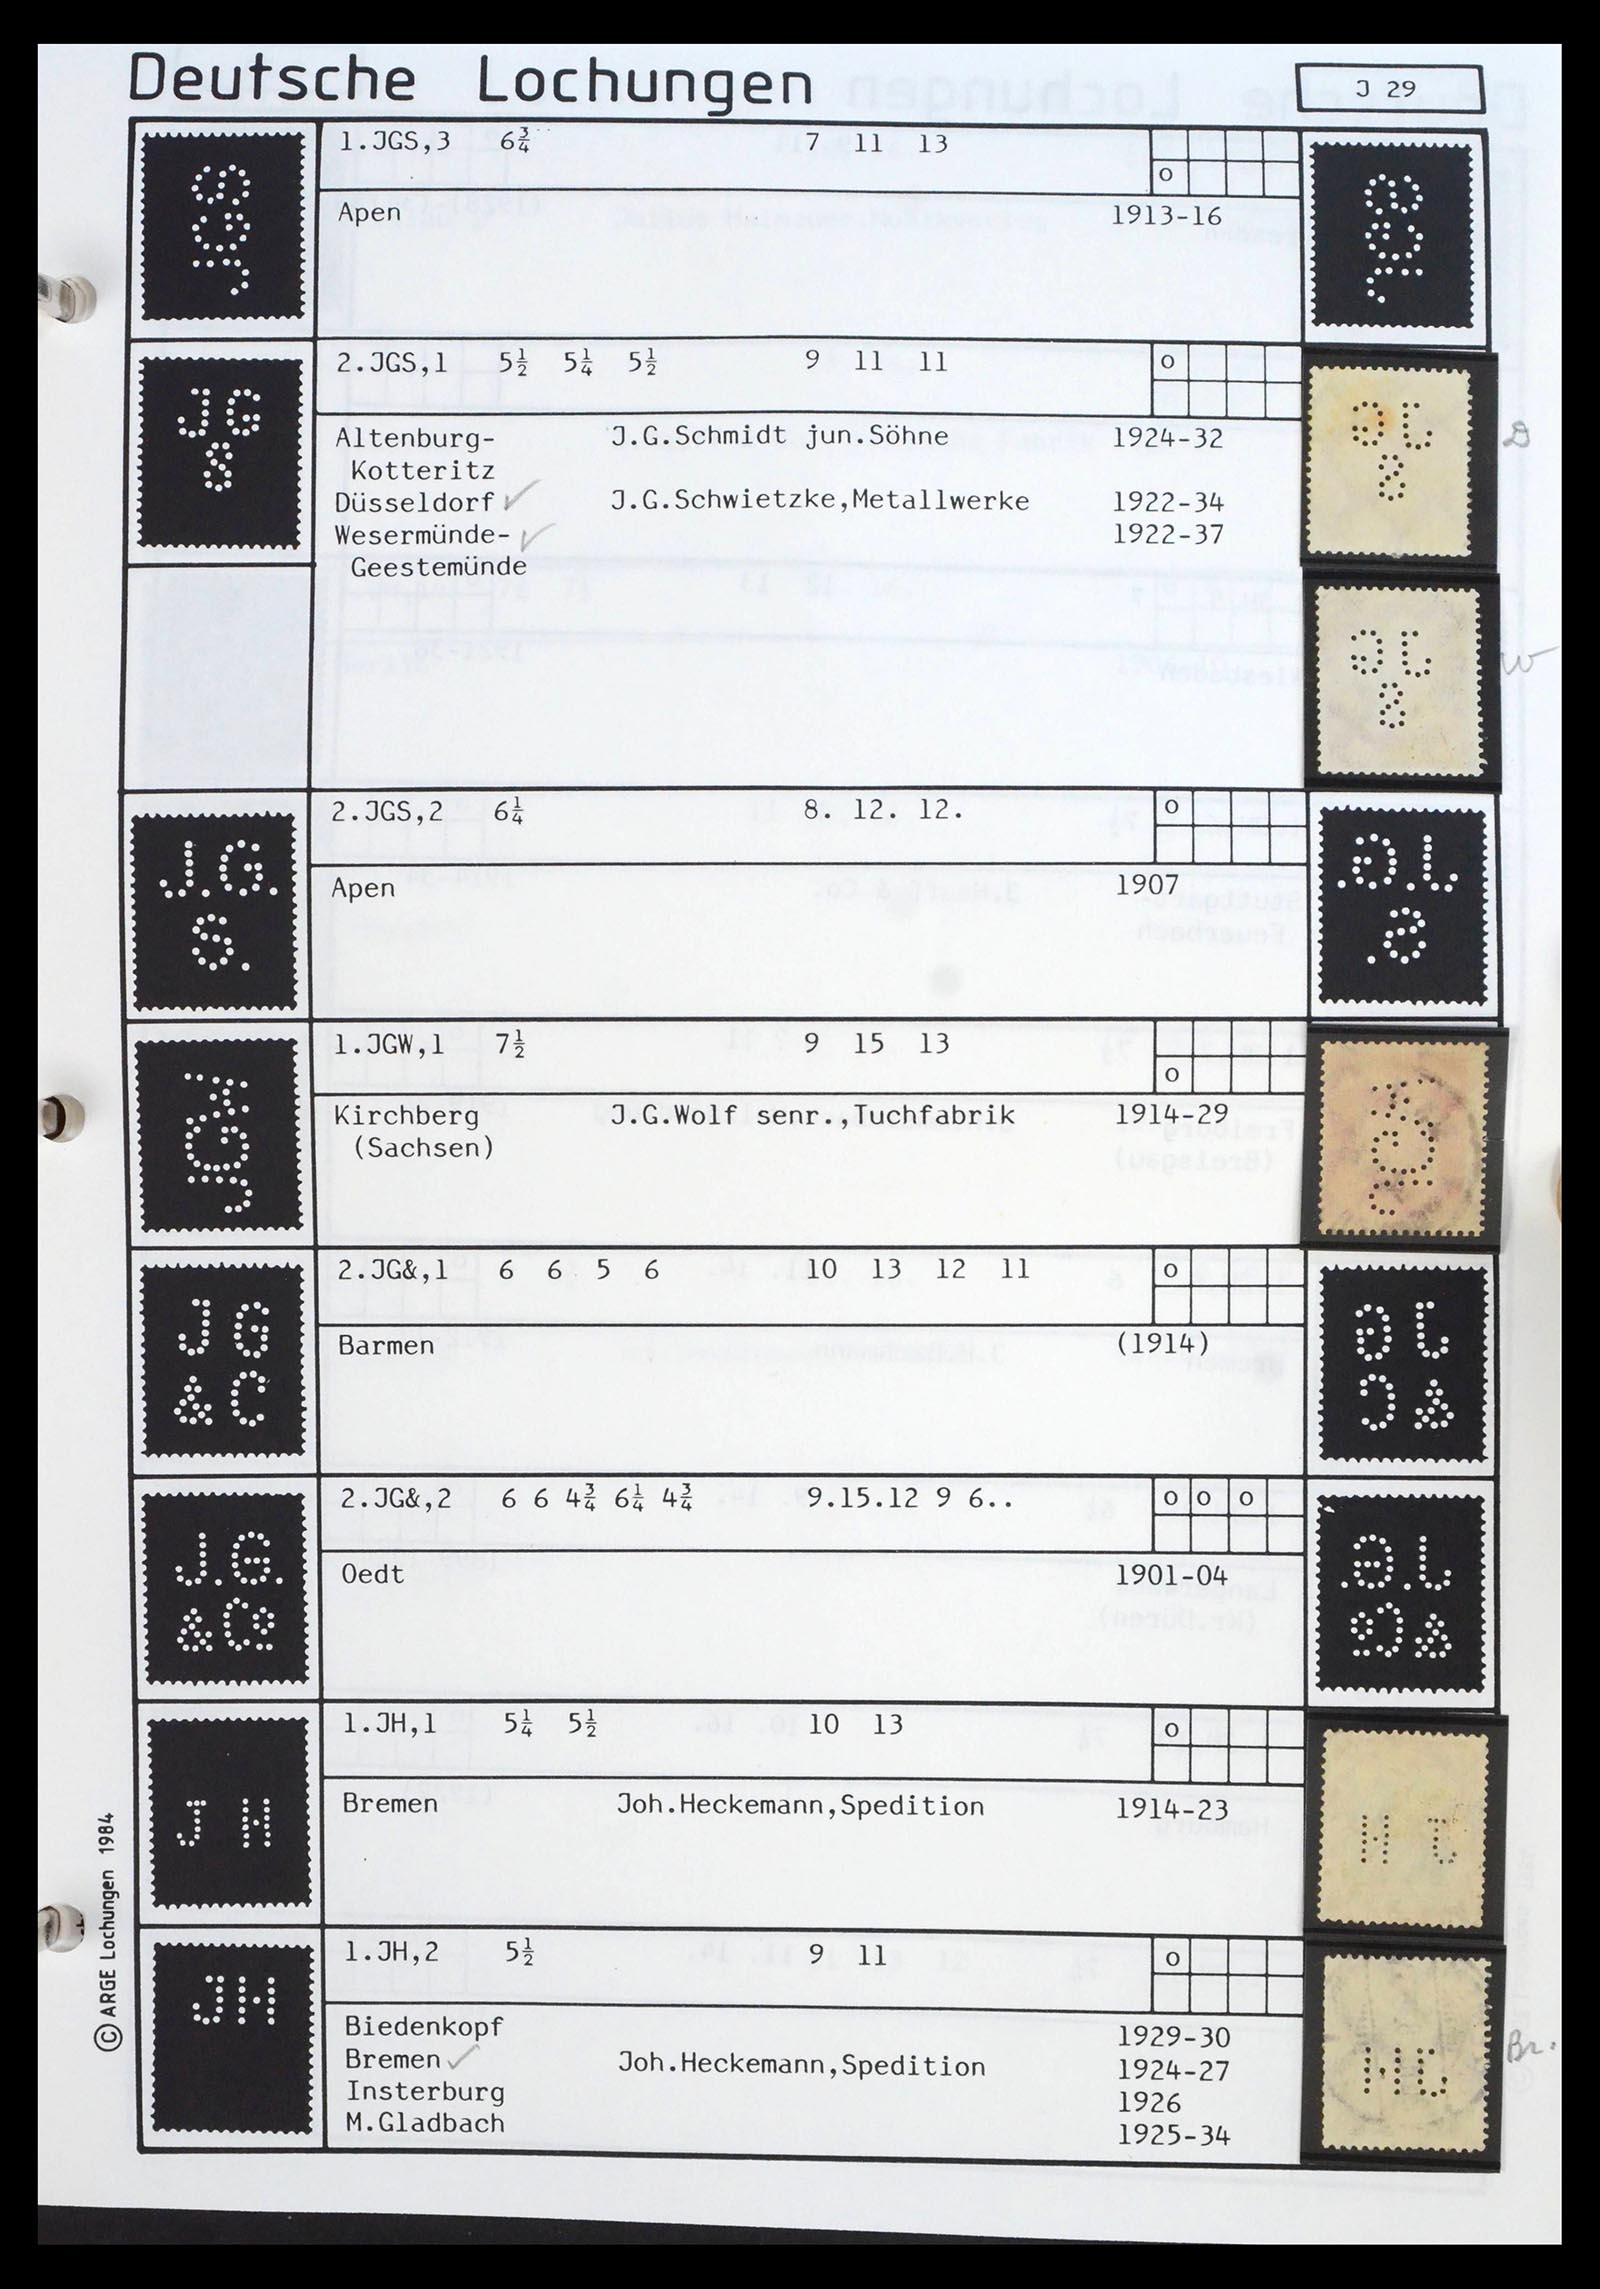 Deutsche Lochungen
J 29
1.JGS,3 6¾ 7 11 13
o
Apen 1913-16
2.JGS,1 5½ 5¼ 5½ 9 11 11 o
JG
S
Altenburg- J.G.Schmidt jun.Söhne 1924-32
Kotteritz
Düsseldorf ✓ J.G.Schwietzke,Metallwerke 1922-34
Wesermünde- ✓ 1922-37
Geestemünde
D
W
2.JGS,2 6¼ 8. 12. 12. o
J.G.
S.
Apen 1907
1.JGW,1 7½ 9 15 13
o
Kirchberg J.G.Wolf senr.,Tuchfabrik 1914-29
(Sachsen)
2.JG&,1 6 6 5 6 10 13 12 11 o
JG
&C
Barmen (1914)
2.JG&,2 6 6 4¾ 6¼ 4¾ 9.15.12 9 6.. o o o
J.G.
&Co
Oedt 1901-04
1.JH,1 5¼ 5½ 10 13 o
J H
Bremen Joh.Heckemann,Spedition 1914-23
1.JH,2 5½ 9 11 o
JH
Biedenkopf 1929-30
Bremen ✓ Joh.Heckemann,Spedition 1924-27
Insterburg 1926
M.Gladbach 1925-34
Br.
© ARGE Lochungen 1984